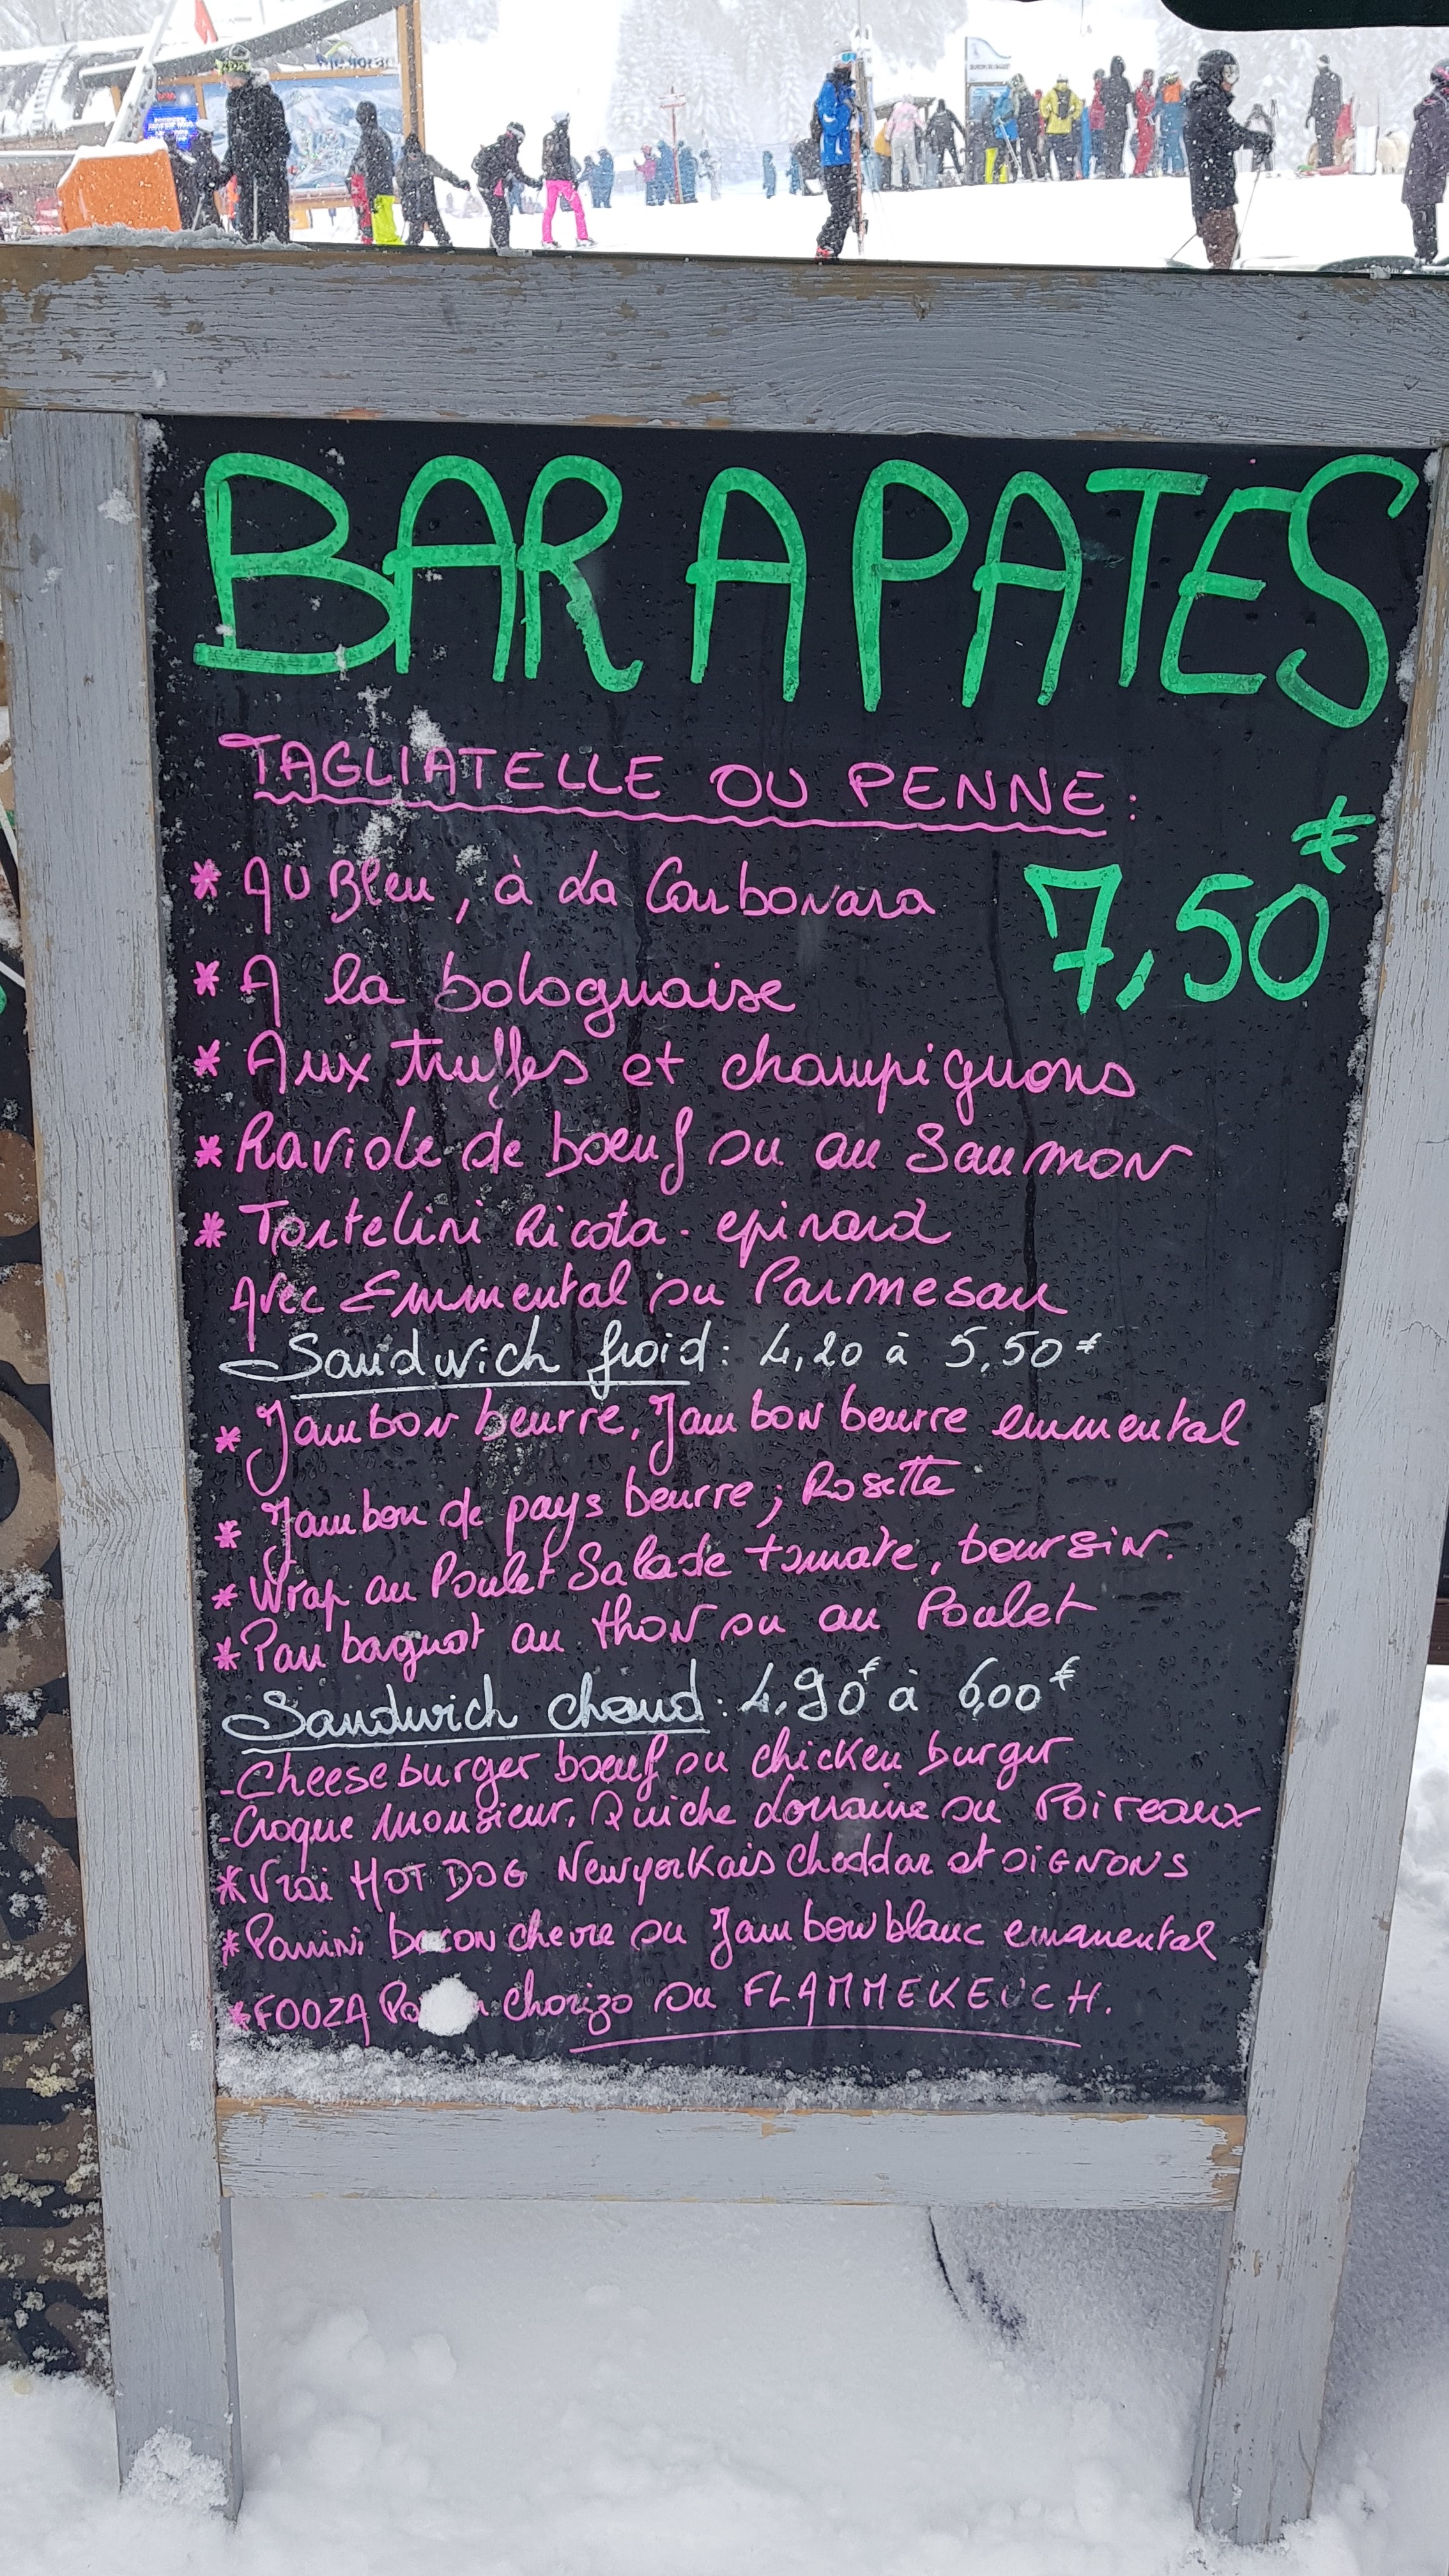 BAR A PATES
TAGLIATELLE OU PENNE:
* AU Bleu, à La Carbonara
7,50€
* A la bolognaise
* Aux truffes et champignons
* Raviole de bœuf ou au Saumon
* Tortelini Ricota - epinard
Avec Emmental ou Parmesan
Sandwich froid: 4,20 à 5,50€
* Jambon beurre, Jambon beurre emmental
* Jambon de pays beurre; Rosette
* Wrap au Poulet Salade tomate, boursin.
* Pan bagnat au thon ou au Poulet
Sandwich chaud: 4,90€ à 6,00€
- Cheese burger bœuf ou chicken burger
- Croque Monsieur, Quiche Lorraine ou Poireaux
* Vrai HOT DOG Newyorkais Cheddar et OIGNONS
* Panini bacon chevre ou Jambon blanc emmental
* FOOZA Chorizo ou FLAMMEKEUCH.